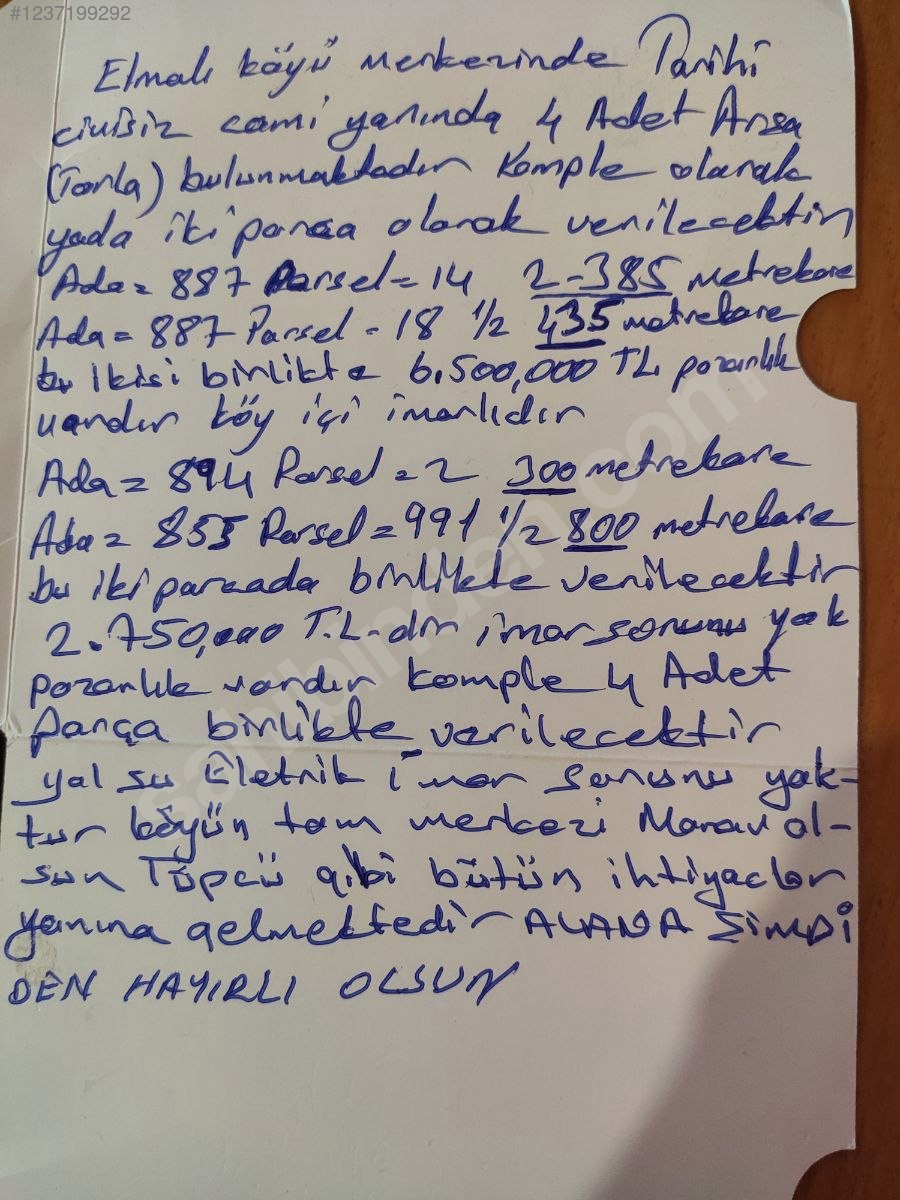 #1237199292
Elmalı köyü merkezinde Tarihi
çivisiz cami yanında 4 Adet Arsa
(Tarla) bulunmaktadır Komple olarak
yada iki parça olarak verilecektir
Ada = 887 Parsel = 14 2-385 metrekare
Ada = 887 Parsel - 18 1/2 435 metrekare
bu ikisi birlikte 6.500,000 TL. pazarlık
vardır köy içi imarlıdır
Ada = 894 Parsel = 2 300 metrekare
Ada = 855 Parsel = 991 1/2 800 metrekare
bu iki parçada birlikte verilecektir
2.750,000 T.L-dir imar sorunu yok
pazarlık vardır komple 4 Adet
parça birlikte verilecektir
yol su Eletrik imar sorunu yok-
tur köyün tam merkezi Manav ol-
sun Tüpcü gibi bütün ihtiyaclar
yanına gelmektedir ALANA ŞİMDİ
DEN HAYIRLI OLSUN
sahibinden.com